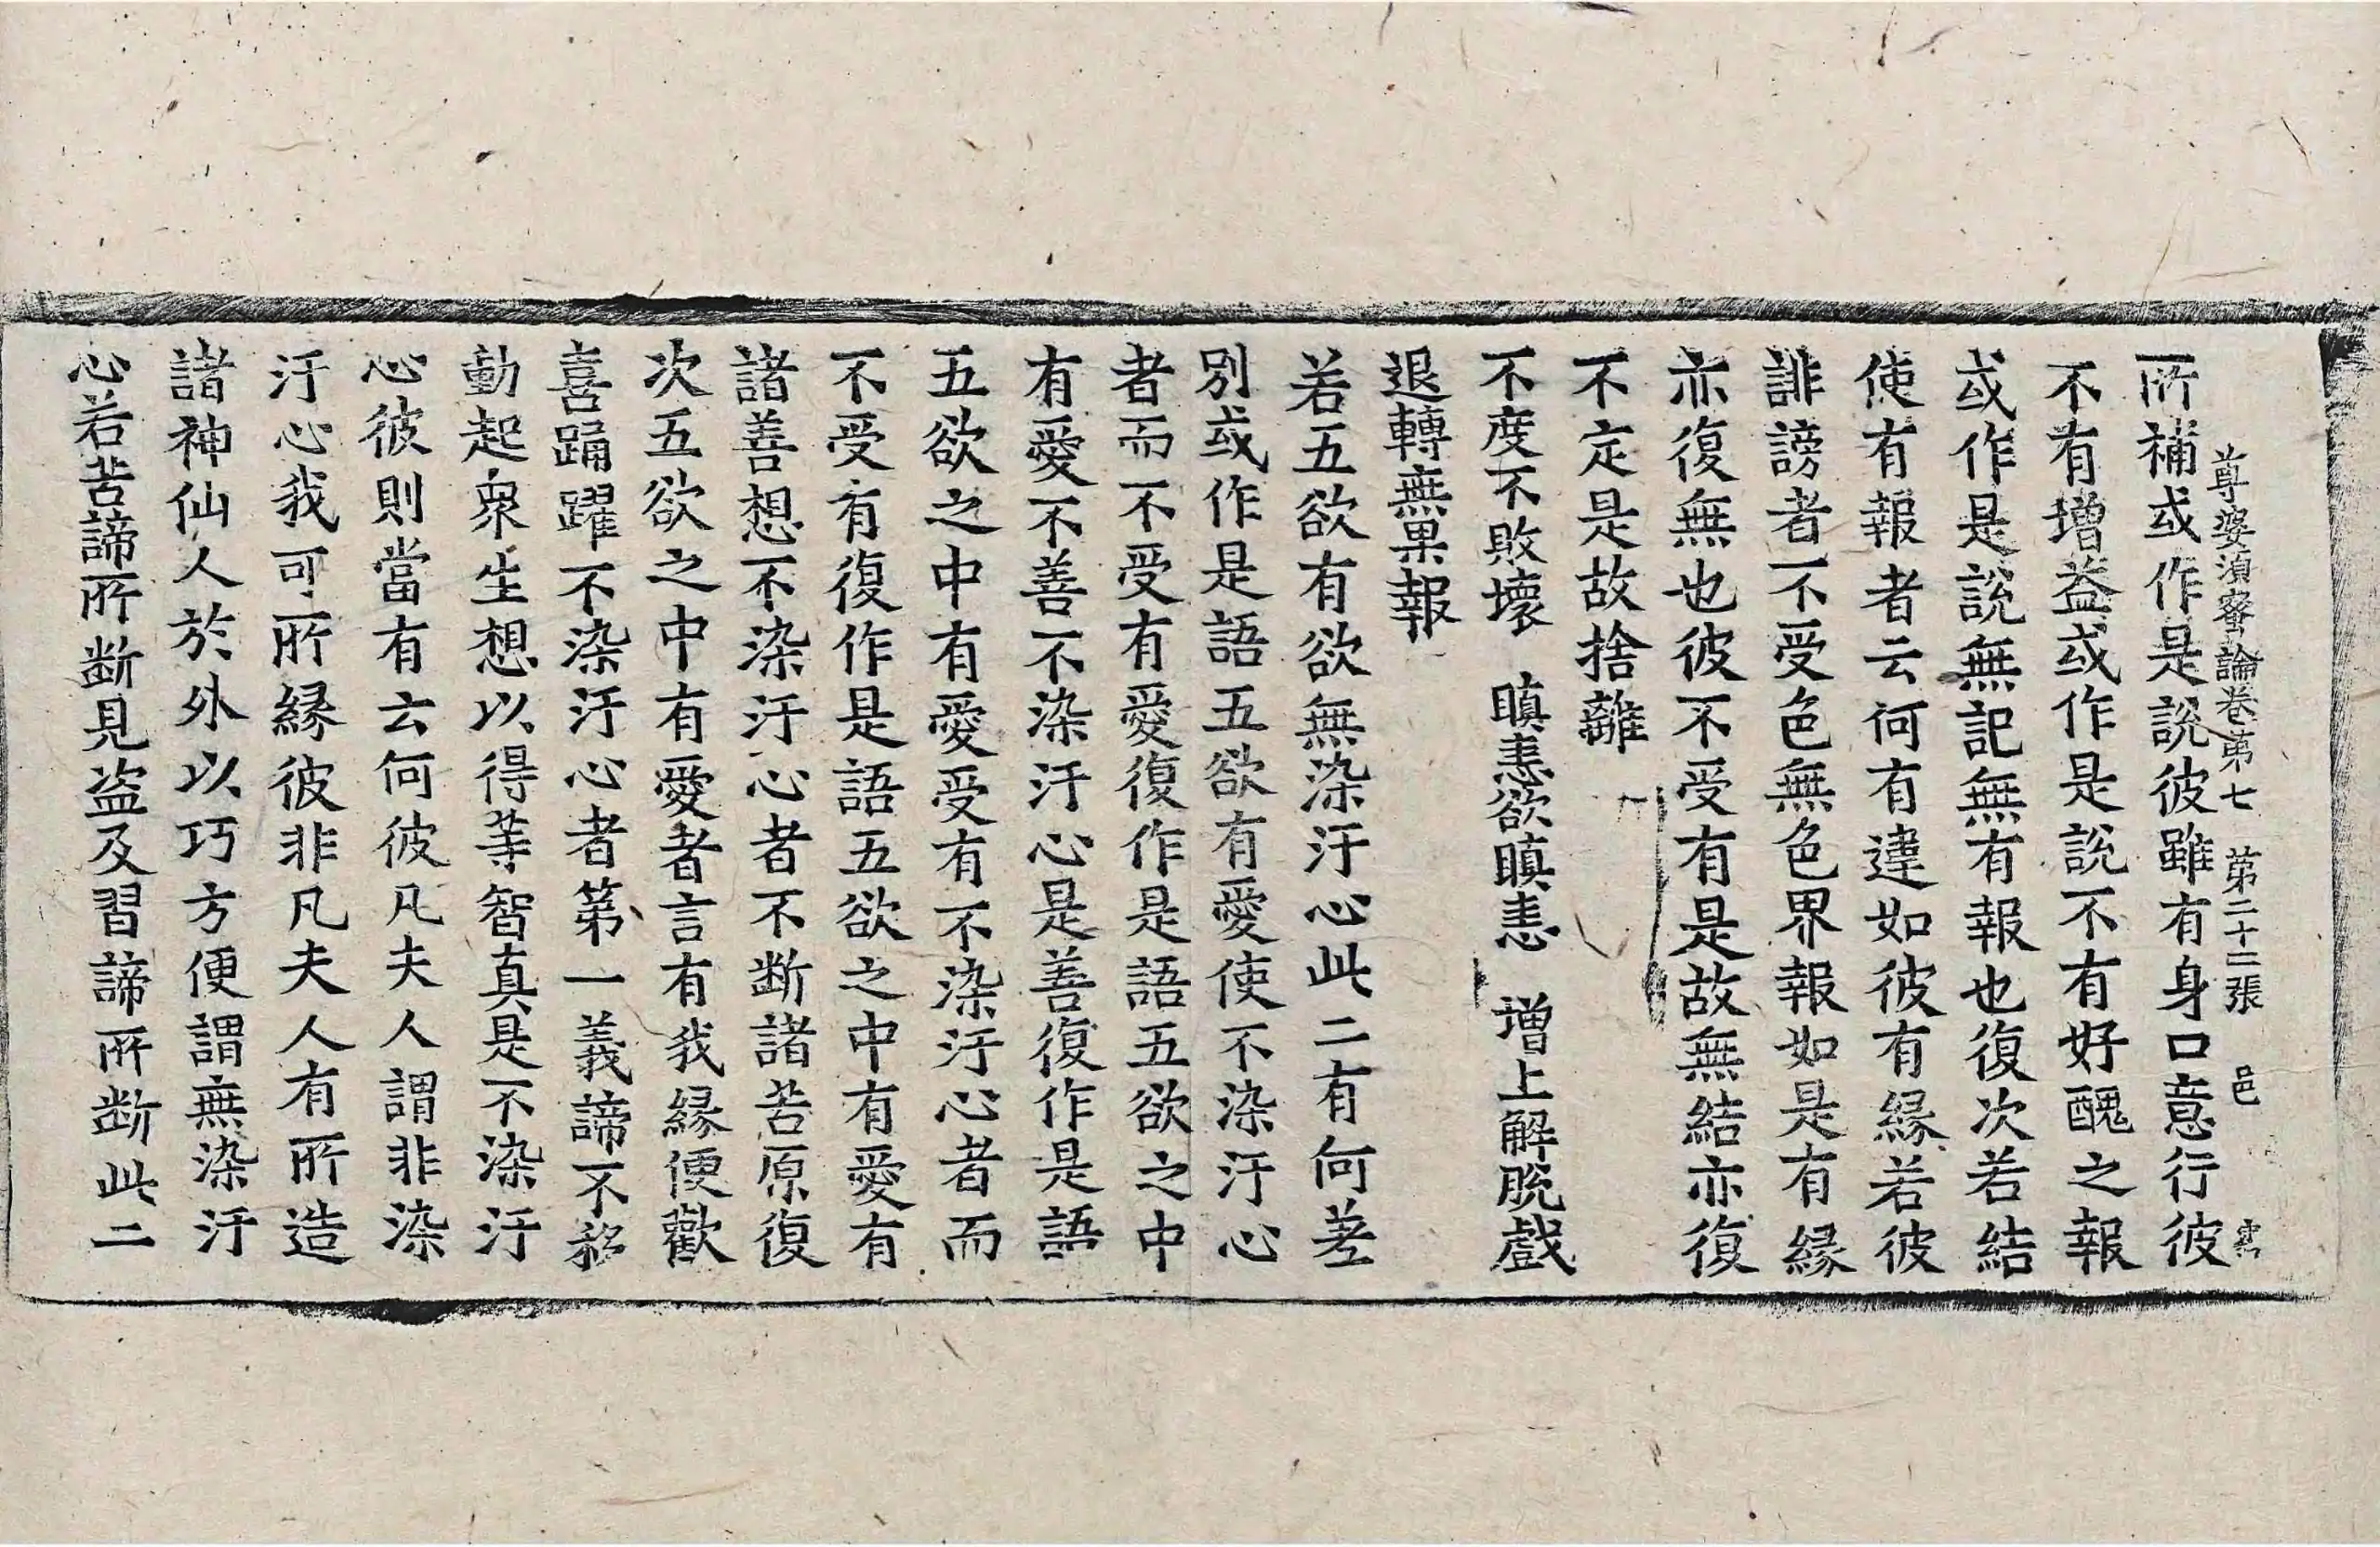 所補或作是說彼雖有身口意行彼
尊婆須蜜論卷第七 第二十三張 邑
不有增益或作是說不有好醜之報
或作是說無記無有報也復次若結
使有報者云何有違如彼有緣若彼
誹謗者不受色無色界報如是有緣
亦復無也彼不受有是故無結亦復
不定是故捨離
不度不敗壞 瞋恚欲瞋恚 增上解脫戲
退轉無果報
若五欲有欲無染汙心此二有何差
別或作是語五欲有愛使不染汙心
者而不受有愛復作是語五欲之中
有愛不善不染汙心是善復作是語
五欲之中有愛受有不染汙心者而
不受有復作是語五欲之中有愛有
諸善想不染汙心者不斷諸苦原復
次五欲之中有愛者言有我緣便歡
喜踊躍不染汙心者第一義諦不移
動起衆生想以得等智真是不染汙
心彼則當有云何彼凡夫人謂非染
汙心我可所緣彼非凡夫人有所造
諸神仙人於外以巧方便謂無染汙
心若苦諦所斷見盜及習諦所斷此二